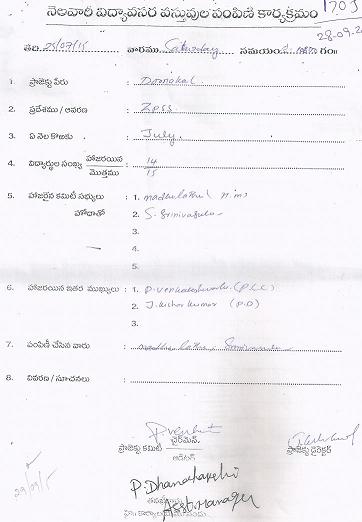 1703
నెలవారీ విద్యావసర వస్తువుల పంపిణీ కార్యక్రమం
28-09-2
తేది. 25/07/15 వారము. Saturday సమయం గం॥
1. ప్రాజెక్టు పేరు : Doonakal.
2. ప్రదేశము / ఆవరణ : ZPSS.
3. ఏ నెల కొఱకు : July.
4. విద్యార్థుల సంఖ్య హాజరయిన / మొత్తము : 14/15
5. హాజరైన కమిటీ సభ్యులు : 1. madhulatha
హోదాతో 2. S. Srinivasulu
3.
4.
5.
6. హాజరయిన ఇతర ముఖ్యులు : 1. P. Venkateshwarlu (P.C.C)
2. J. Kishor Kumar (P.D)
3.
7. పంపిణీ చేసిన వారు : madhu latha, Srinivasulu
8. వివరణ / సూచనలు :
ప్రాజెక్టు కమిటీ చైర్‌మెన్. ప్రాజెక్టు డైరెక్టర్
ఆడిటర్
29/09/15
P. Dhanalakshi
Asst. Manager